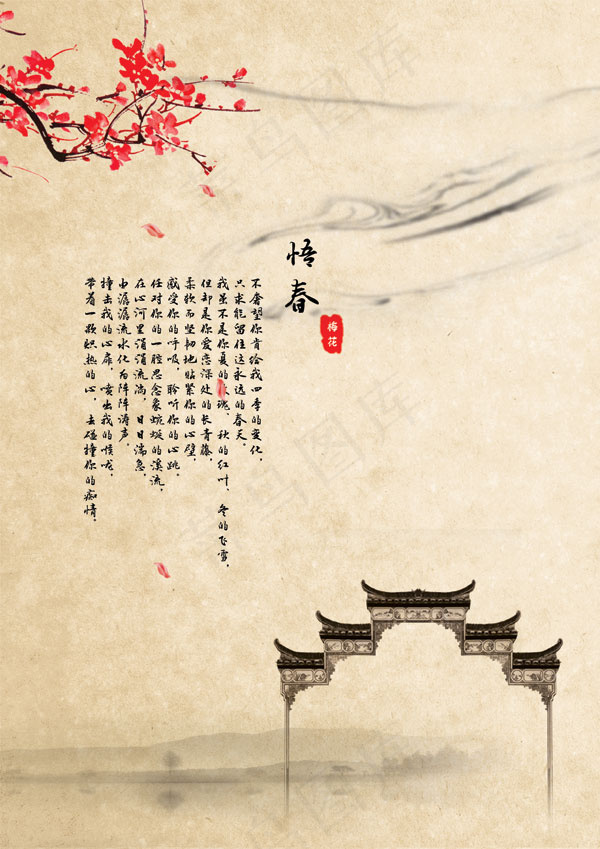 悟春
梅花
不奢望你肯给我四季的变化，
只求能留住这永远的春天。
我虽不是你夏的玫瑰、秋的红叶、冬的飞雪，
但却是你爱恋深处的长青藤，
柔软而坚韧地贴紧你的心壁，
感受你的呼吸，聆听你的心跳。
任对你的一腔思念象蜿蜒的溪流，
在心河里涓涓流淌，日日湍急，
由潺潺流水化为阵阵涛声，
撞击我的心扉，喷出我的喉咙，
带着一颗炽热的心，去碰撞你的痴情。